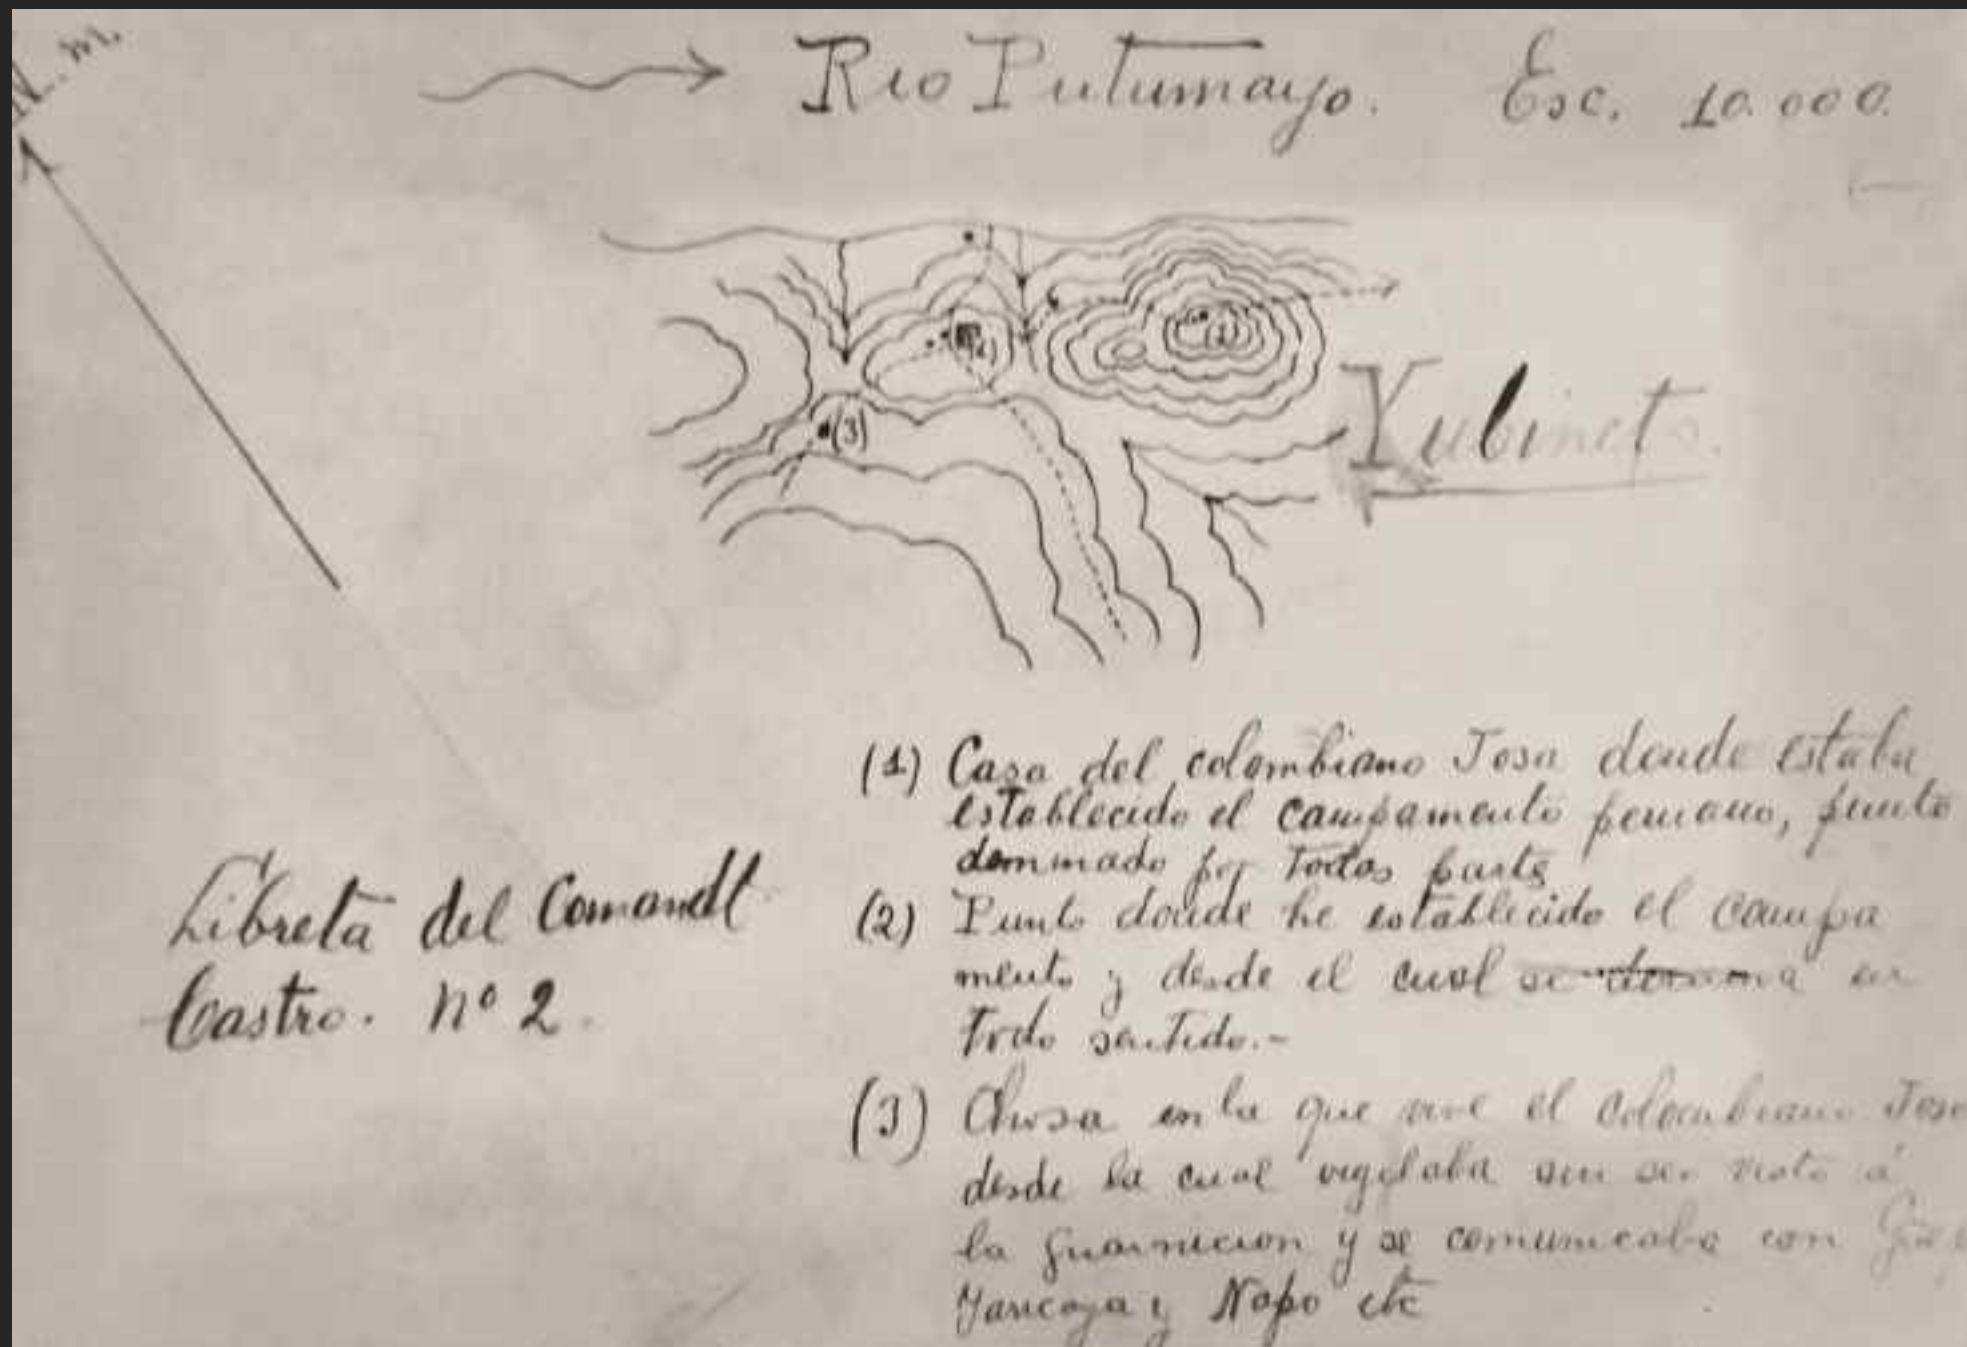 N. m.
Rio Putumayo. Esc. 10.000.
(1)
(2)
(3)
Yubineto.
(1) Casa del colombiano Josa donde estaba
establecido el campamento peruano, punto
dominado por todas parts
(2) Punto donde he establecido el campa
mento y desde el cual se domina en
todo sentido.-
(3) Chosa en la que vive el colombiano Josa
desde la cual vigilaba sin ser visto á
la guarnicion y se comunicaba con
Yaricaya y Napo etc
Libreta del Comandt
Castro. nº 2.